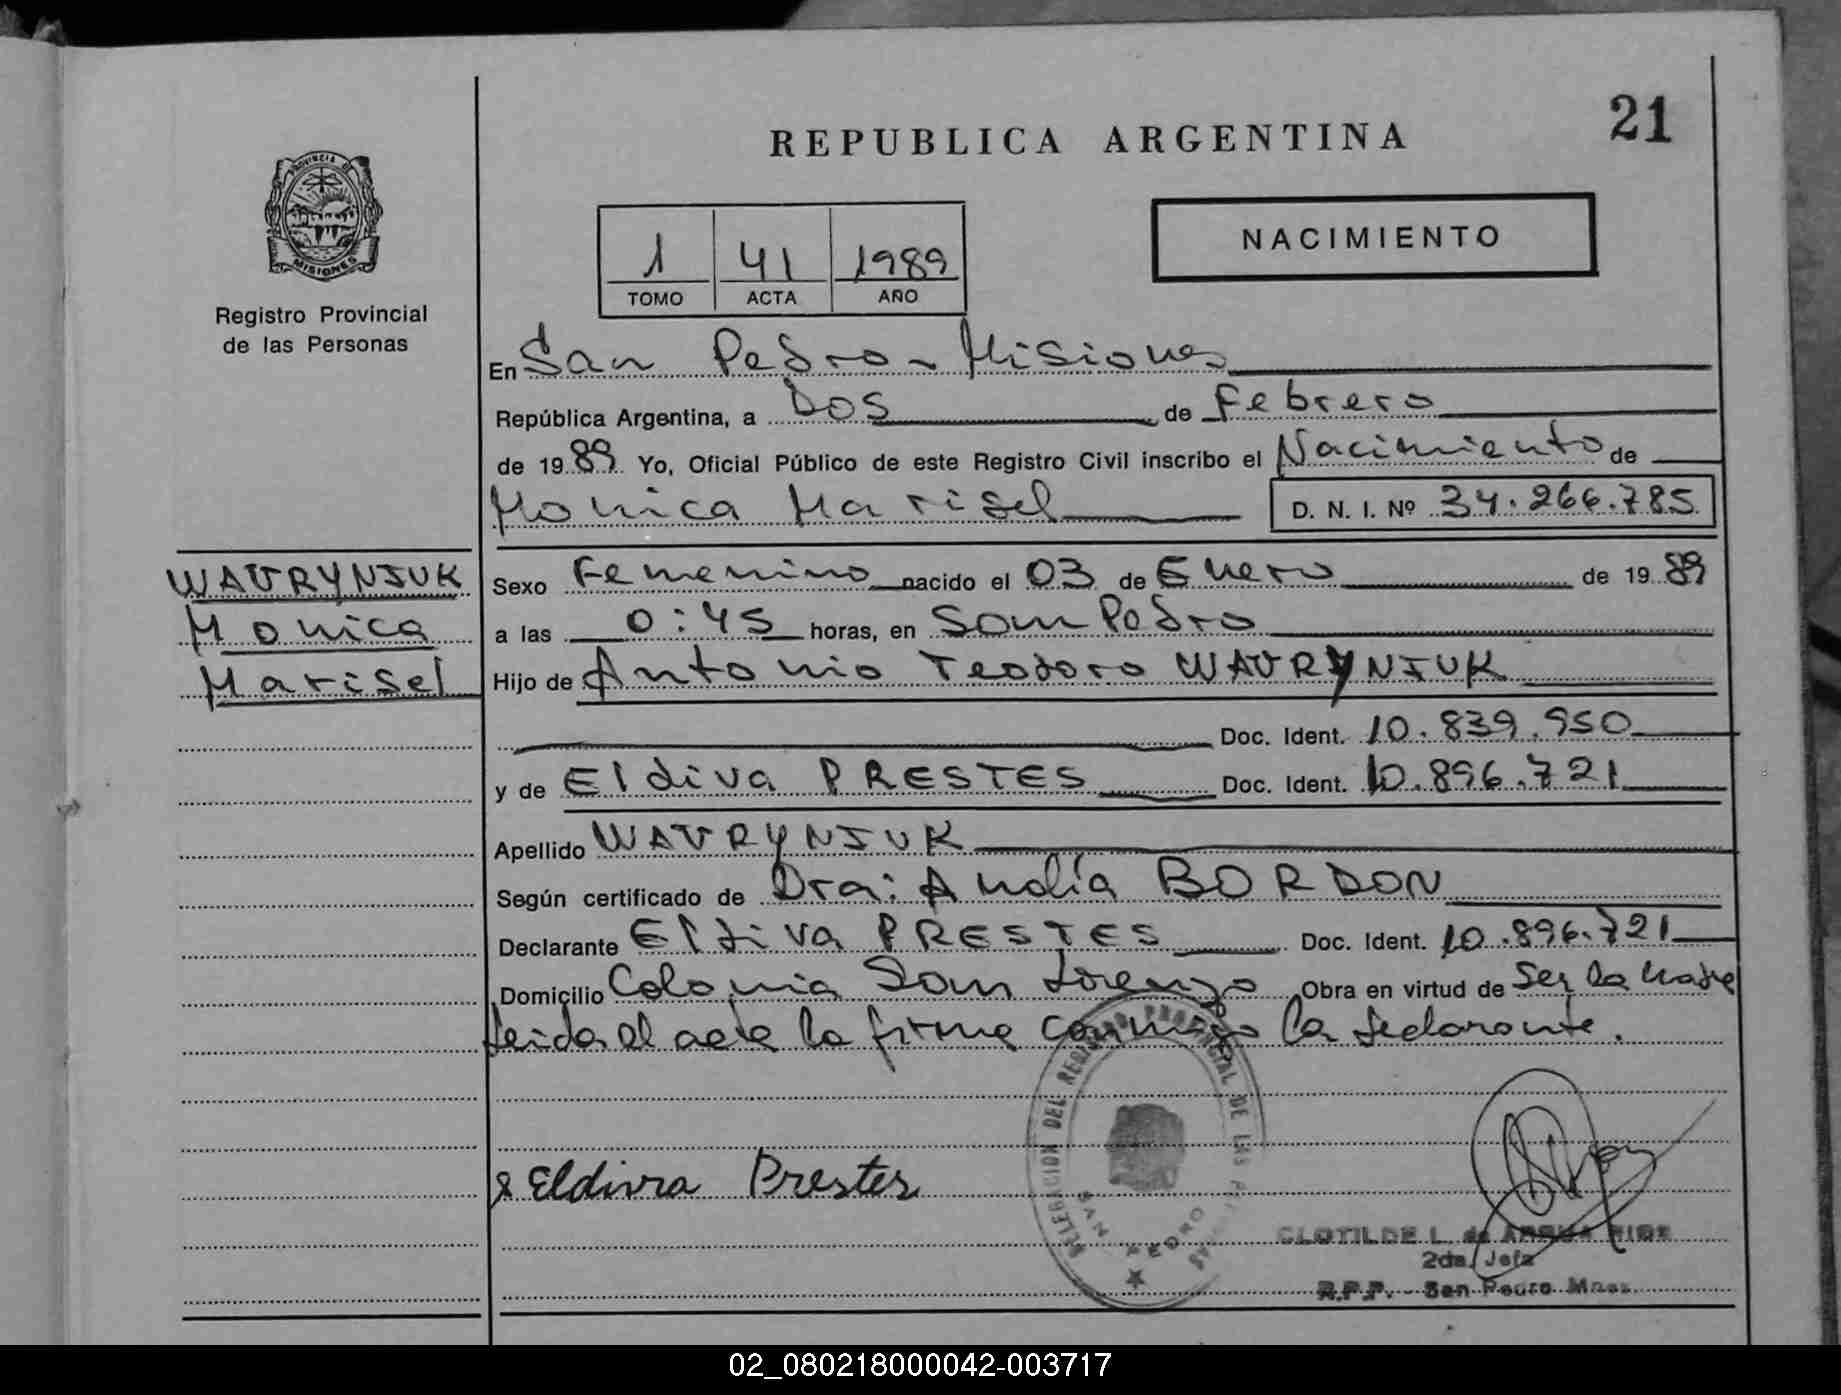 REPUBLICA ARGENTINA
21
PROVINCIA DE
MISIONES
Registro Provincial
de las Personas
1 41 1989
TOMO ACTA AÑO
NACIMIENTO
En San Pedro - Misiones
República Argentina, a Dos de Febrero
de 1989 Yo, Oficial Público de este Registro Civil inscribo el Nacimiento de
Monica Marisel D. N. I. Nº 34.266.785
WAVRYNIUK
Monica
Marisel
Sexo Femenino nacido el 03 de Enero de 1989
a las 0:45 horas, en San Pedro
Hijo de Antonio Teodoro WAVRYNIUK
Doc. Ident. 10.839.950
y de Eldiva PRESTES Doc. Ident. 10.896.721
Apellido WAVRYNIUK
Según certificado de Dra: Analía BORDON
Declarante Eldiva PRESTES Doc. Ident. 10.896.721
Domicilio Colonia San Lorenzo Obra en virtud de Ser la Madre
Leida el acta la firma conmigo la declarante.
Eldivra Prestes
DELEGACION DEL REGISTRO PROVINCIAL DE LAS PERSONAS
SAN PEDRO
CLOTILDE L. de
2da. Jefa
R.P.P. - San Pedro Mnes.
02_080218000042-003717